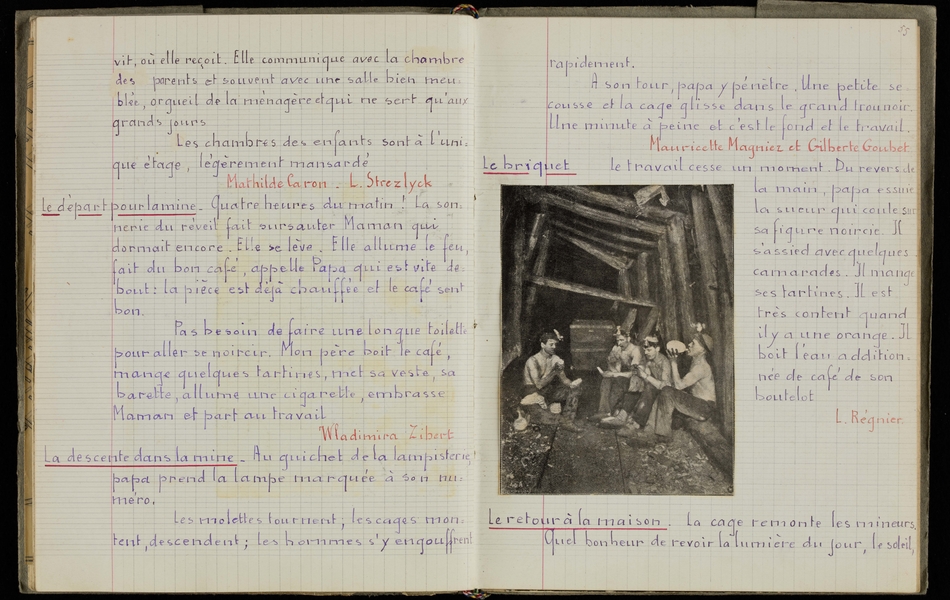 vit, où elle reçoit. Elle communique avec la chambre
des parents et souvent avec une salle bien meu-
blée, orgueil de la ménagère et qui ne sert qu'aux
grands jours
Les chambres des enfants sont à l'uni-
que étage, légèrement mansardé
Mathilde Caron - L. Strezlyck
Le départ pour la mine. Quatre heures du matin ! La son-
nerie du réveil fait sursauter Maman qui
dormait encore. Elle se lève. Elle allume le feu,
fait du bon café, appelle Papa qui est vite de-
bout: la pièce est déjà chauffée et le café sent
bon.
Pas besoin de faire une longue toilette
pour aller se noircir. Mon père boit le café,
mange quelques tartines, met sa veste, sa
barette, allume une cigarette, embrasse
Maman et part au travail
Wladimira Zibert
La descente dans la mine. Au guichet de la lampisterie,
papa prend la lampe marquée à son nu-
méro.
Les molettes tournent, les cages mon-
tent, descendent; les hommes s'y engouffrent
55
rapidement.
A son tour, papa y pénètre. Une petite se-
cousse et la cage glisse dans le grand trou noir.
Une minute à peine et c'est le fond et le travail.
Mauricette Magniez et Gilberte Goubet
Le briquet le travail cesse un moment. Du revers de
la main, papa essuie
la sueur qui coule sur
sa figure noircie. Il
s'assied avec quelques
camarades. Il mange
ses tartines. Il est
très content quand
il y a une orange. Il
boit l'eau addition-
née de café de son
boutelot
L. Régnier
Le retour à la maison. La cage remonte les mineurs,
Quel bonheur de revoir la lumière du jour, le soleil,